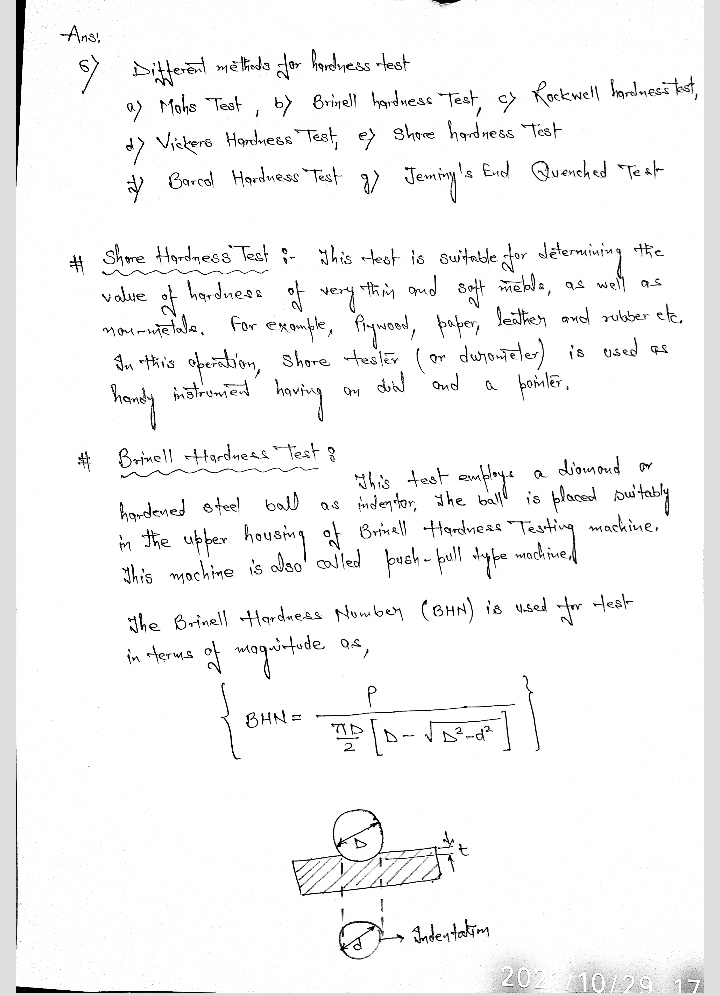 Ans:
6) Different methods for hardness test
a) Mohs Test, b) Brinell hardness Test, c) Rockwell hardness test,
d) Vickers Hardness Test, e) Shore hardness Test
f) Barcol Hardness Test g) Jeminy's End Quenched Test
# Shore Hardness Test :- This test is suitable for determining the
value of hardness of very thin and soft metals, as well as
non-metals. For example, Plywood, paper, leather and rubber etc.
In this operation, Shore tester (or durometer) is used as
handy instrument having an dial and a pointer.
# Brinell Hardness Test :
This test employs a diamond or
hardened steel ball as indentor, The ball is placed suitably
in the upper housing of Brinell Hardness Testing machine.
This machine is also called push-pull type machine.
The Brinell Hardness Number (BHN) is used for test
in terms of magnitude as,
{ BHN = P / (πD/2 [D - √D²-d²]) }
D
t
d → Indentation
2021/10/29 17